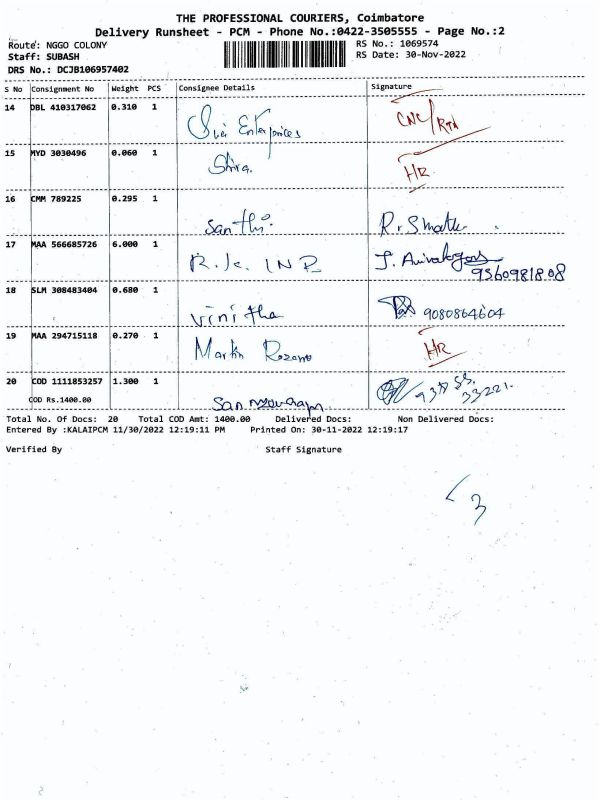 THE PROFESSIONAL COURIERS, Coimbatore
Delivery Runsheet - PCM - Phone No.:0422-3505555 - Page No.:2
Route: NGGO COLONY
RS No.: 1069574
Staff: SUBASH
RS Date: 30-Nov-2022
DRS No.: DCJB106957402
S No Consignment No Weight PCS Consignee Details Signature
14 DBL 410317062 0.310 1 Enterprices CNC/RTN
15 MYD 3030496 0.060 1 Shira. HR
16 CMM 789225 0.295 1 Santhi.
17 MAA 566685726 6.000 1 R.K. IND
18 SLM 308483404 0.680 1 Vinitha 9080864604
19 MAA 294715118 0.270 1 Martin HR
20 COD 1111853257 1.300 1
COD Rs.1400.00
Total No. Of Docs: 20 Total COD Amt: 1400.00 Delivered Docs: Non Delivered Docs:
Entered By :KALAIPCM 11/30/2022 12:19:11 PM Printed On: 30-11-2022 12:19:17
Verified By Staff Signature
3